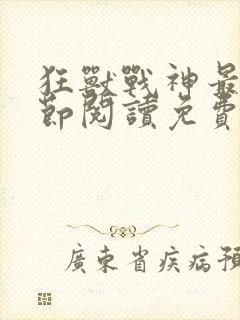 狂獸戰神最
節閱讀免費
廣東省疾病預